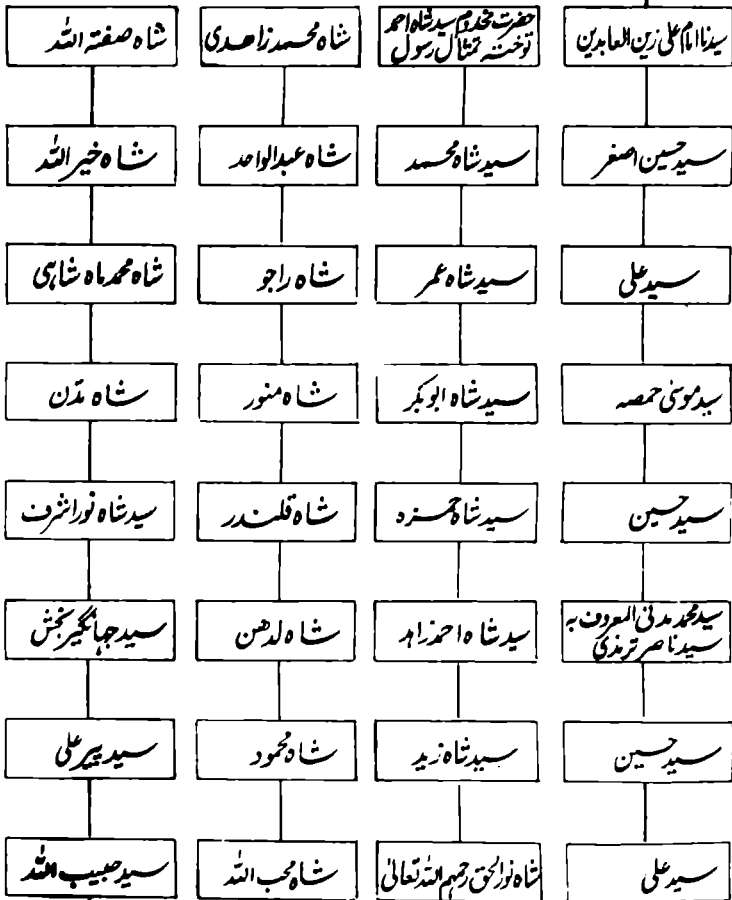 سیدنا امام علی زین العابدین
سید حسین اصغر
سید علی
سید موسیٰ حمصہ
سید حسین
سید محمد مدنی المعروف بہ
سید ناصر ترمذی
سید حسین
سید علی
حضرت مخدوم سید شاہ احمد
توختہ تمثال رسول
سید شاہ محمد
سید شاہ عمر
سید شاہ ابوبکر
سید شاہ حمزہ
سید شاہ احمد زاہد
سید شاہ زید
شاہ نورالحق رحمہم اللہ تعالیٰ
شاہ محمد زاھدی
شاہ عبدالواحد
شاہ راجو
شاہ منور
شاہ قلندر
شاہ لدھن
شاہ محمود
شاہ محب اللہ
شاہ صفتہ اللہ
شاہ خیر اللہ
شاہ محمد ماہ شاہی
شاہ مدن
سید شاہ نور اشرف
سید جہانگیر بخش
سید پیر علی
سید حبیب اللہ